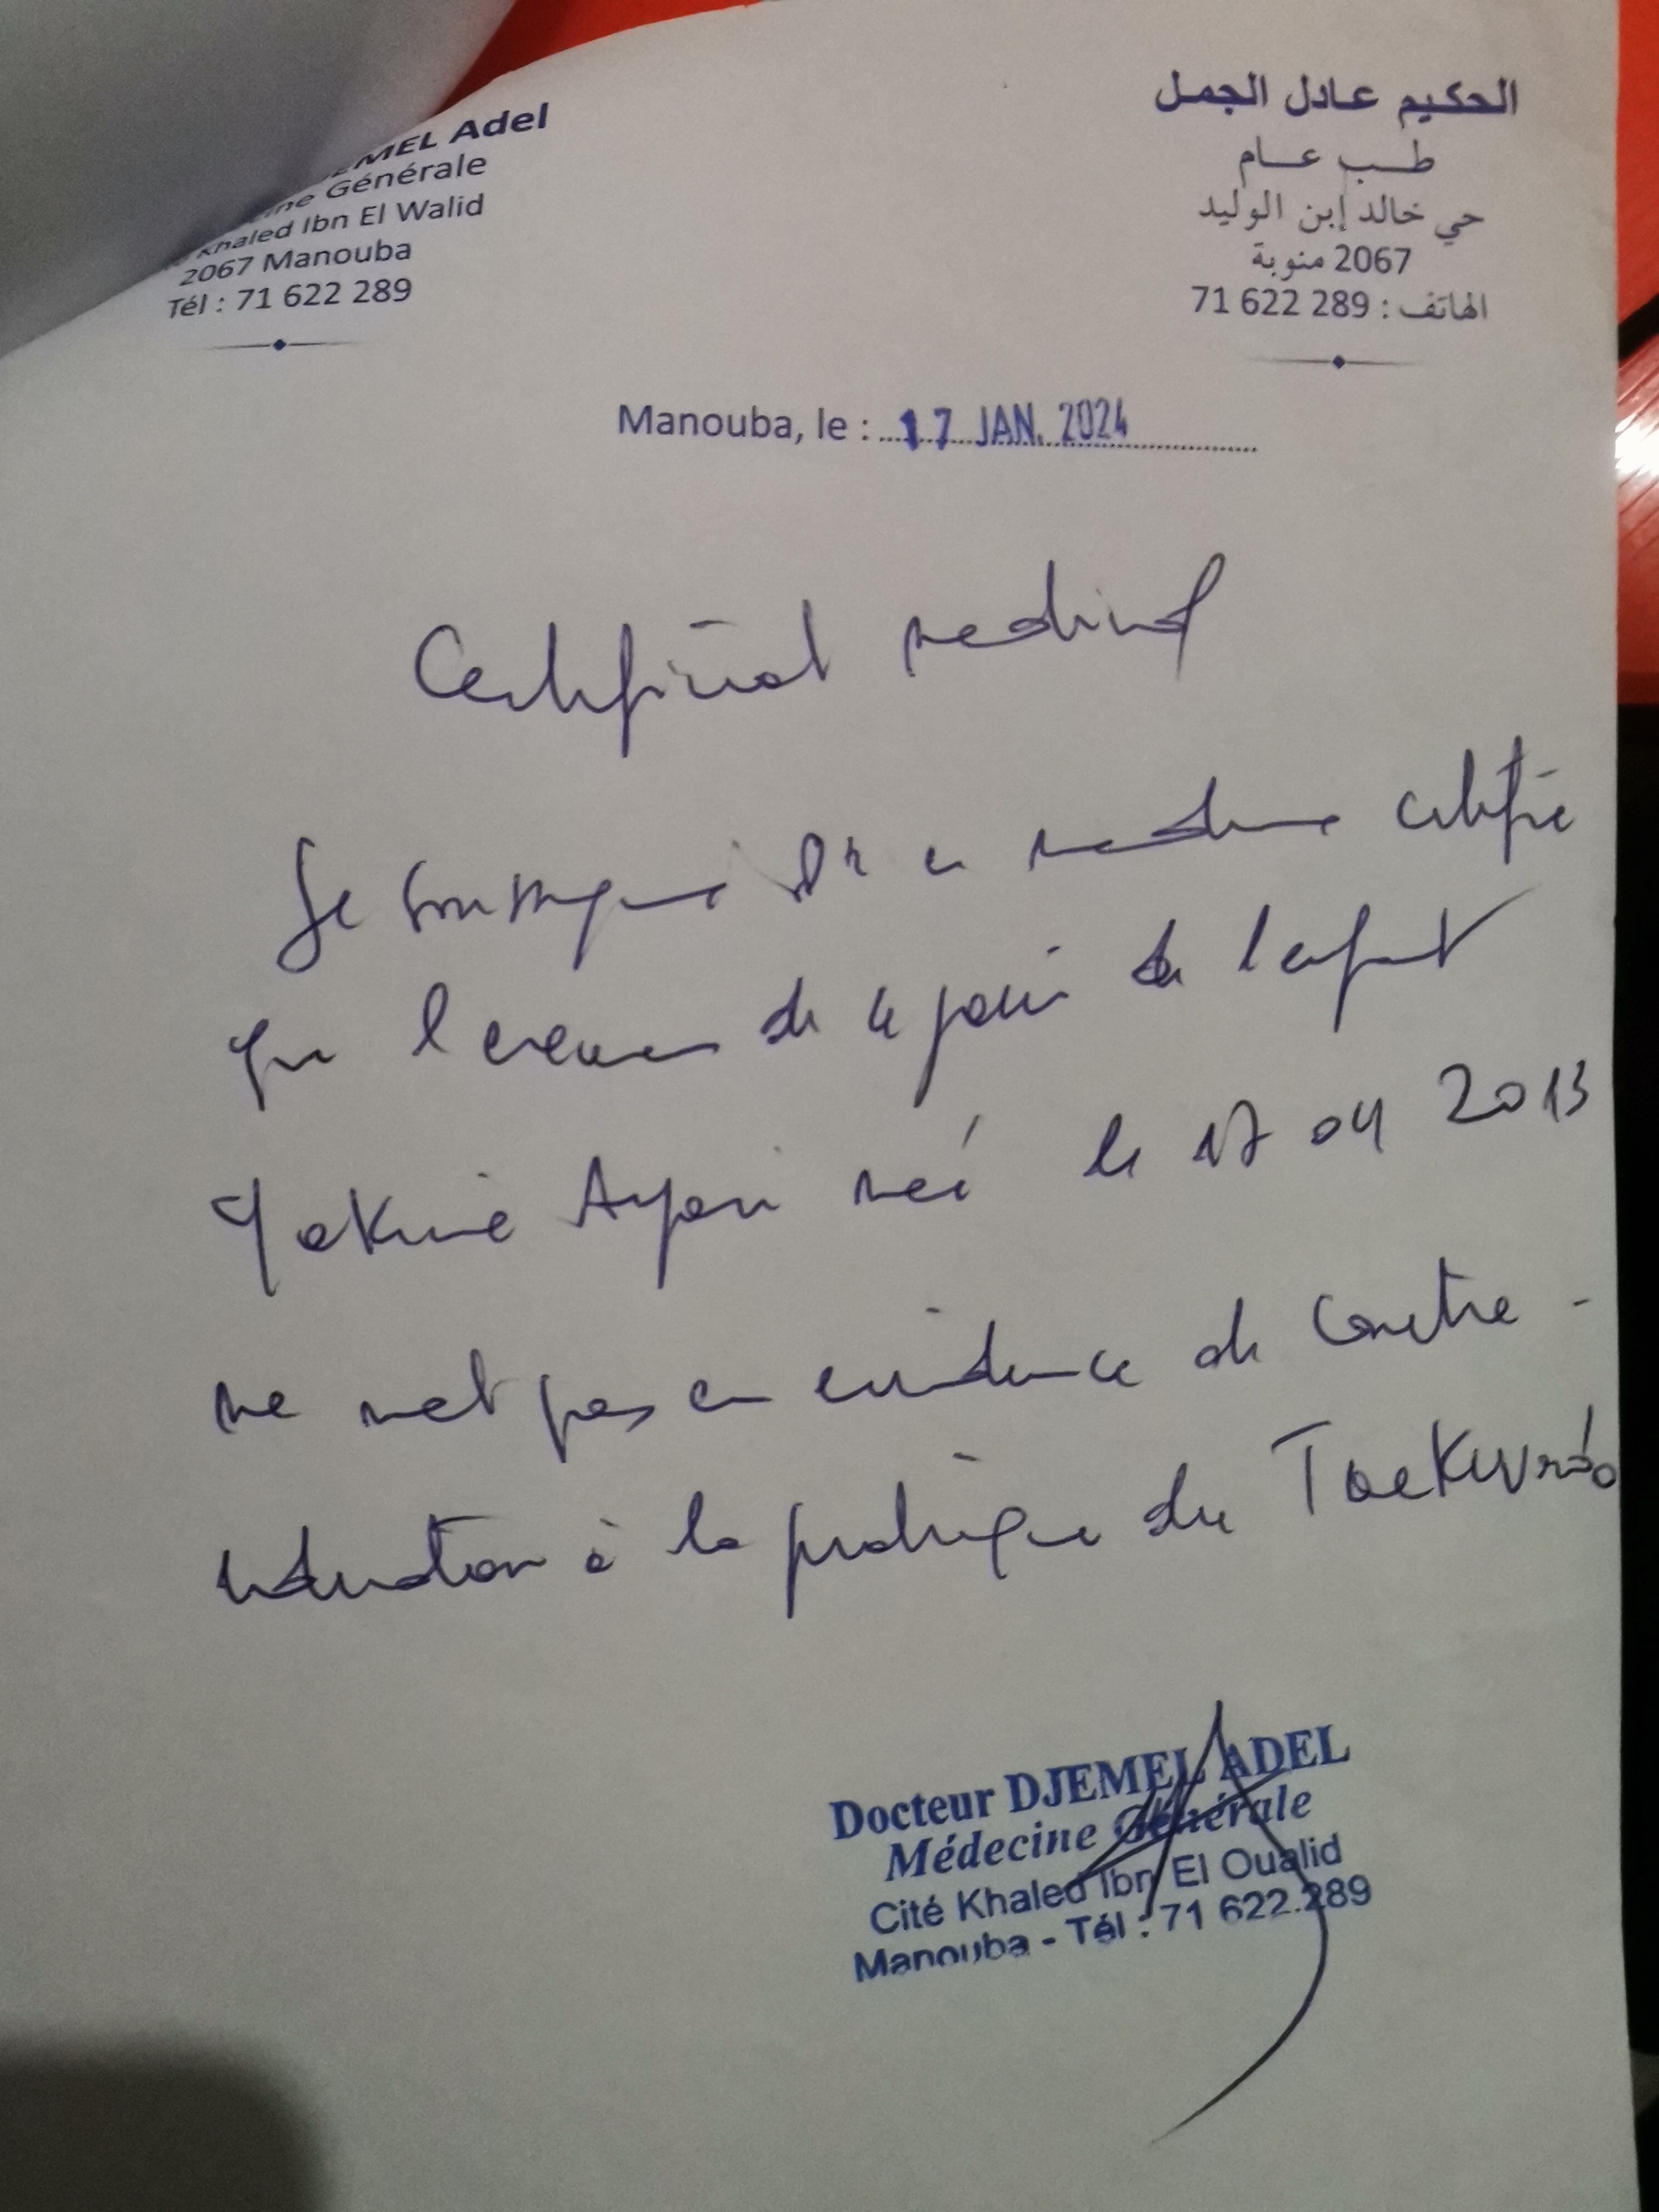 MEL Adel
ine Générale
Khaled Ibn El Walid
2067 Manouba
Tél : 71 622 289
الحكيم عادل الجمل
طب عام
حي خالد إبن الوليد
2067 منوبة
الهاتف : 71 622 289
Manouba, le : 17 JAN. 2024
Certificat medical
Je soussigné Dr en medecine certifie
que l'examen de ce jour de l'enfant
Yakine Ayari née le 17 04 2013
ne met pas en evidence de contre-
indication à la pratique du Taekwndo
Docteur DJEMEL ADEL
Médecine Générale
Cité Khaled Ibn El Oualid
Manouba - Tél : 71 622.289